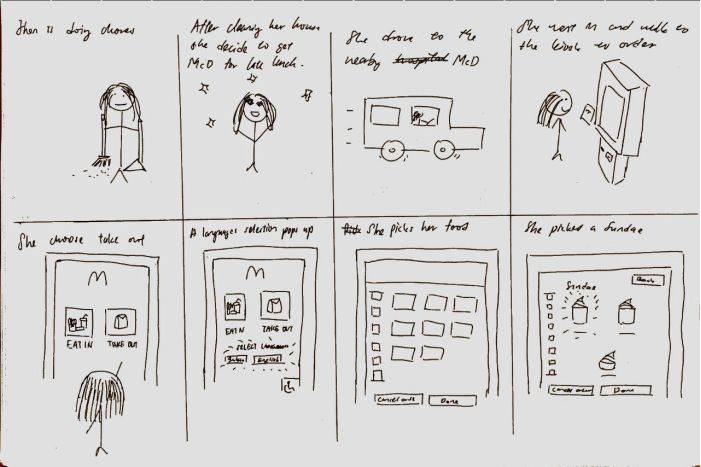 is doing chores
After cleaning her house
she decide to get
McD for late lunch.
She drove to the
nearby hospital McD
She went in and walk to
the kiosk to order
She choose take out
EAT IN
TAKE OUT
A languages selection pops up
EAT IN
TAKE OUT
SELECT LANGUAGE
English
She picks her food
Cancel order
Done
She picked a Sundae
Sundae
Cancel order
Done